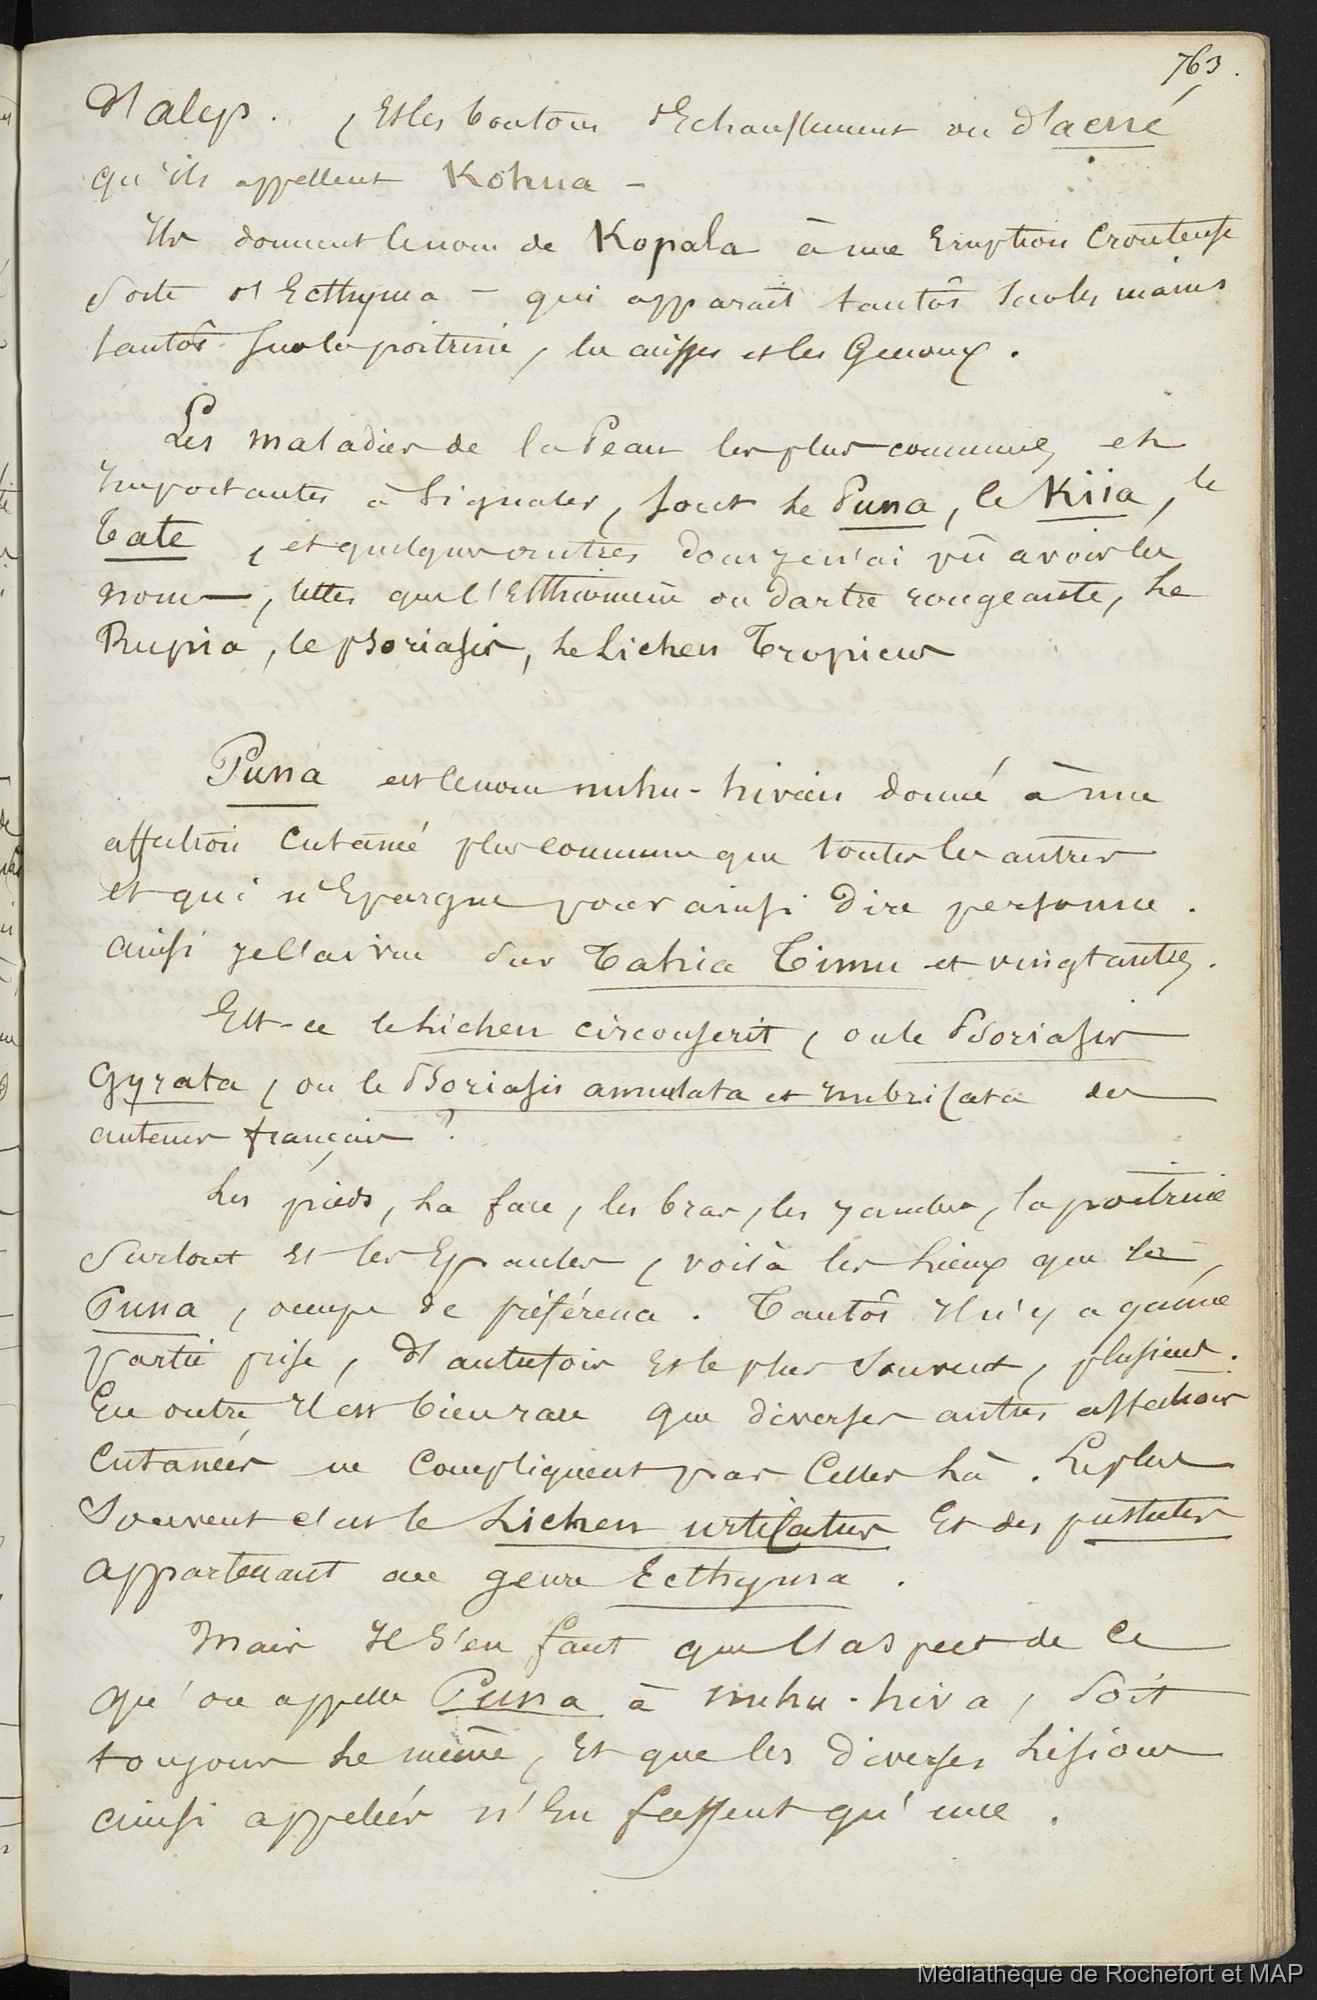 763.
d'alep. , Et les boutons d'Echauffement ou d'acné
qu'ils appellent Kohua -
Ils donnent le nom de Kopala à une Eruption Crouteuse
Sorte d'Ecthyma - qui apparait tantôt sur les mains
tantôt sur la poitrine, les cuisses et les Genoux.
Les maladies de la Peau les plus communes, et
Importantes à Signaler, sont le Puna, le Kiia, le
Tate, et quelques autres dont je n'ai pû avoir les
noms, telles que l'Esthiomène ou dartre rongeante, le
Rupia, le psoriasis, le Lichen Tropicus
Puna est le nom nuhu-hivien donné à une
affection Cutanée plus commune que toutes les autres
et qui n'Epargne pour ainsi dire personne.
ainsi je l'ai vue sur Tahia Timu et vingt autres.
Est-ce le Lichen circonscrit, ou le Psoriasis
Gyrata, ou le Psoriasis annulata et Imbricata des
auteurs français?
Les pieds, La face, les bras, les jambes, la poitrine
Surtout Et les Epaules, voilà les Lieux que le
Puna, occupe de préférence. Tantôt Il n'y a qu'une
partie prise, d'autrefois Et le plus Souvent, plusieurs.
En outre Il est bien rare que diverses autres affections
Cutanées ne Compliquent pas Celles Là. Le plus
Souvent c'est le Lichen urticatus Et des pustules
appartenant au genre Ecthyma.
Mais Il S'en faut que l'aspect de Ce
qu'on appelle Puna à nuhu-hiva, Soit
toujours Le même, Et que les diverses Lésions
ainsi appelées n'En fassent qu'une.
Médiathèque de Rochefort et MAP